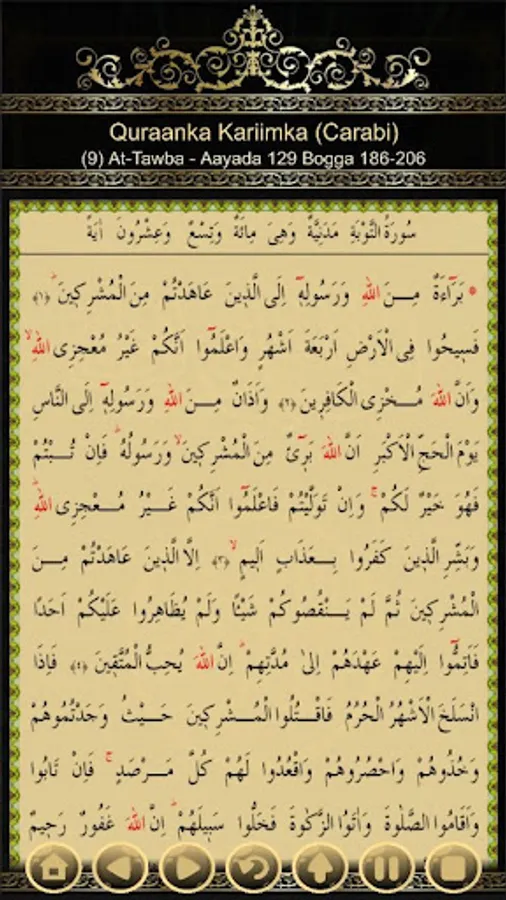 Quraanka Kariimka (Carabi)
(9) At-Tawba - Aayada 129 Bogga 186-206
سُورَةُ التَّوْبَةِ مَدَنِيَّةٌ وَهِىَ مِائَةٌ وَتِسْعٌ وَعِشْرُونَ اٰيَةً
* بَرَٓاءَةٌ مِنَ اللّٰهِ وَرَسُولِهِٓ اِلَى الَّذِينَ عَاهَدْتُمْ مِنَ الْمُشْرِكِينَۜ ﴿١﴾
فَسِيحُوا فِى الْاَرْضِ اَرْبَعَةَ اَشْهُرٍ وَاعْلَمُٓوا اَنَّكُمْ غَيْرُ مُعْجِزِى اللّٰهِۙ
وَاَنَّ اللّٰهَ مُخْزِى الْكَافِرِينَ ﴿٢﴾ وَاَذَانٌ مِنَ اللّٰهِ وَرَسُولِهِٓ اِلَى النَّاسِ
يَوْمَ الْحَجِّ الْاَكْبَرِ اَنَّ اللّٰهَ بَرِٓىءٌ مِنَ الْمُشْرِكِينَۙ وَرَسُولُهُۜ فَاِنْ تُبْتُمْ
فَهُوَ خَيْرٌ لَكُمْۚ وَاِنْ تَوَلَّيْتُمْ فَاعْلَمُٓوا اَنَّكُمْ غَيْرُ مُعْجِزِى اللّٰهِۜ
وَبَشِّرِ الَّذِينَ كَفَرُوا بِعَذَابٍ اَلِيمٍۙ ﴿٣﴾ اِلَّا الَّذِينَ عَاهَدْتُمْ مِنَ
الْمُشْرِكِينَ ثُمَّ لَمْ يَنْقُصُوكُمْ شَيْـًٔا وَلَمْ يُظَاهِرُوا عَلَيْكُمْ اَحَدًا
فَاَتِمُّٓوا اِلَيْهِمْ عَهْدَهُمْ اِلٰى مُدَّتِهِمْۜ اِنَّ اللّٰهَ يُحِبُّ الْمُتَّقِينَ ﴿٤﴾ فَاِذَا
انْسَلَخَ الْاَشْهُرُ الْحُرُمُ فَاقْتُلُوا الْمُشْرِكِينَ حَيْثُ وَجَدْتُمُوهُمْ
وَخُذُوهُمْ وَاحْصُرُوهُمْ وَاقْعُدُوا لَهُمْ كُلَّ مَرْصَدٍۚ فَاِنْ تَابُوا
وَاَقَامُوا الصَّلٰوةَ وَاٰتَوُا الزَّكٰوةَ فَخَلُّوا سَبِيلَهُمْۜ اِنَّ اللّٰهَ غَفُورٌ رَحِيمٌ